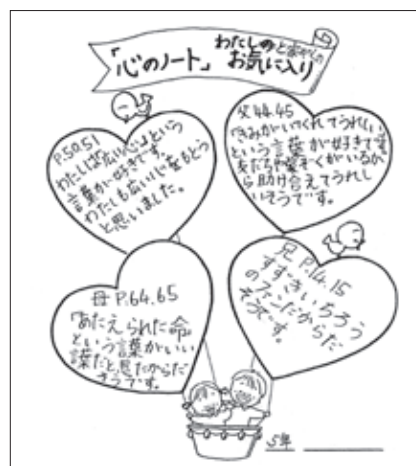 「心のノート」 わたしのと家ぞくの
お気に入り
P.50.51
わたしは「広い心」という
言葉が好きです。
わたしも広い心をもとう
と思いました。
父44.45
「きみがいてくれてうれしい」
という言葉が好きです。
友だちや家ぞくがいるか
ら助け合えてうれし
いそうです。
母 P.64.65
「あたえられた命」
という言葉がいい
葉だと思ったからだ
そうです。
兄 P.14.15
すずきいちろう
のファンだからだ
そうです。
5年